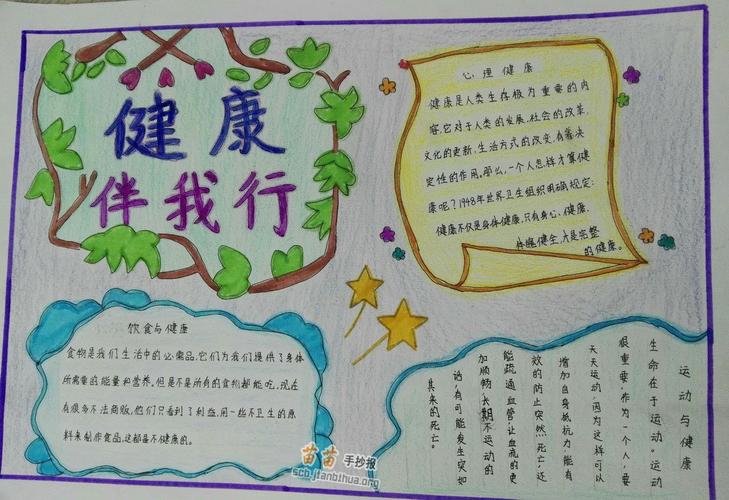 健康
伴我行
心理健康
健康是人类生存极为重要的内
容,它对于人类的发展,社会的改革,
文化的更新,生活方式的改变,有着决
定性的作用。那么,一个人怎样才算健
康呢?1948年世界卫生组织明确规定:
健康不仅是身体健康,只有身心、健康、
体魄健全,才是完整
的健康。
饮食与健康
食物是我们生活中的必需品,它们为我们提供了身体
所需要的能量和营养,但是不是所有的食物都能吃,现在
有很多不法商贩,他们只看到了利益,用一些不卫生的原
料来制作食品,这都是不健康的。
运动与健康
生命在于运动。运动
很重要,作为一个人,要
天天运动,因为这样可以
增加自身抵抗力,能有
效的防止突然死亡;还
能疏通血管,让血流的更
加顺畅,长期不运动的
话,有可能发生突如
其来的死亡。
苗苗手抄报
scb.jianbihua.org